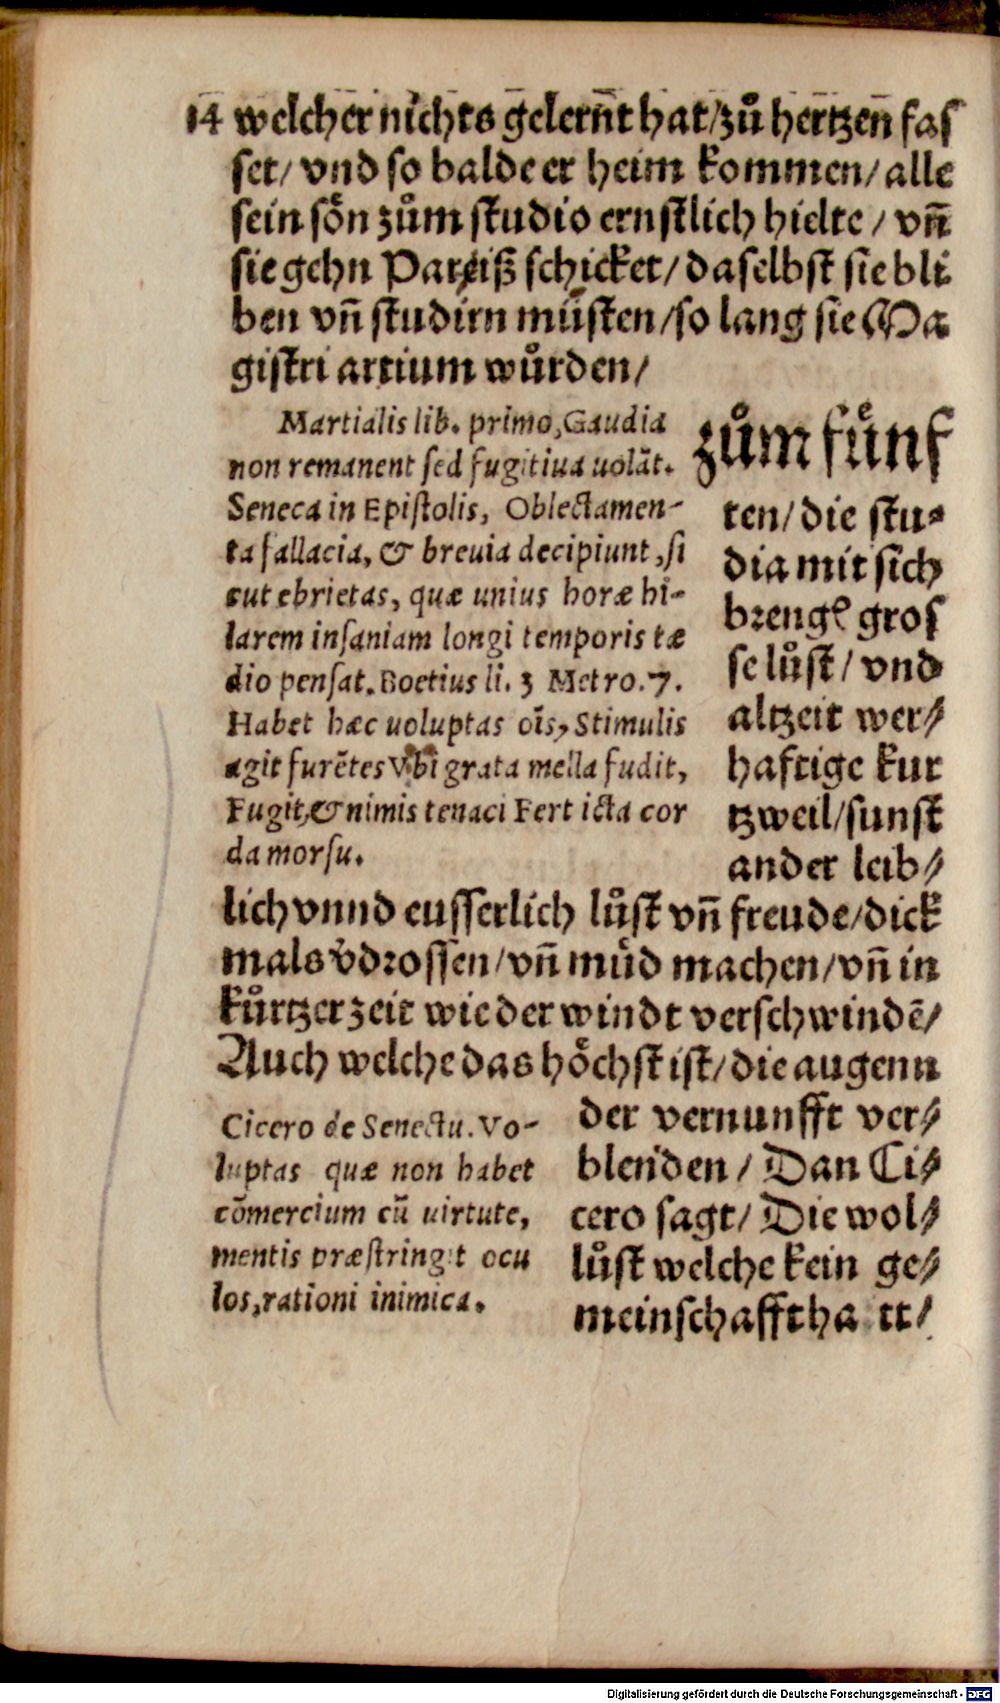 14 welcher nichts gelern̄t hat/zů hertzen̄ fas
set/ vnd so balde er heim kommen/ alle
sein sön zům studio ernstlich hielte / vn̄
sie gehn Pareiß schicket/ daselbst sie bli
ben vn̄ studirn müsten/so lang sie Ma
gistri artium wůrden/
Martialis lib. primo, Gaudia
non remanent sed fugitiua uolāt.
Seneca in Epistolis, Oblectamen-
ta fallacia, & breuia decipiunt, si
cut ebrietas, quæ unius horæ hi-
larem insaniam longi temporis tæ
dio pensat. Boetius li. 3 Metro. 7.
Habet hæc uoluptas oīs, Stimulis
agit furētes Vbi grata mella fudit,
Fugit, & nimis tenaci Fert icta cor
da morsu.
zům fünf
ten/ die stu-
dia mit sich
brengẽ gros
se lůst/ vnd
altzeit wer/
haftige kur
tzweil/sunst
ander leib/
lich vnnd eusserlich lůst vn̄ freude/dick
mals v̄drossen/vn̄ můd machen/vn̄ in
kůrtzer zeit wie der windt verschwindē/
Auch welche das höchst ist/die augenn
Cicero de Senectu. Vo-
luptas quæ non habet
cōmercium cū uirtute,
mentis præstringit ocu
los, rationi inimica.
der vernunfft ver/
blenden / Dan Ci/
cero sagt/ Die wol/
lůst welche kein ge/
meinschafft ha tt/
Digitalisierung gefördert durch die Deutsche Forschungsgemeinschaft - DFG